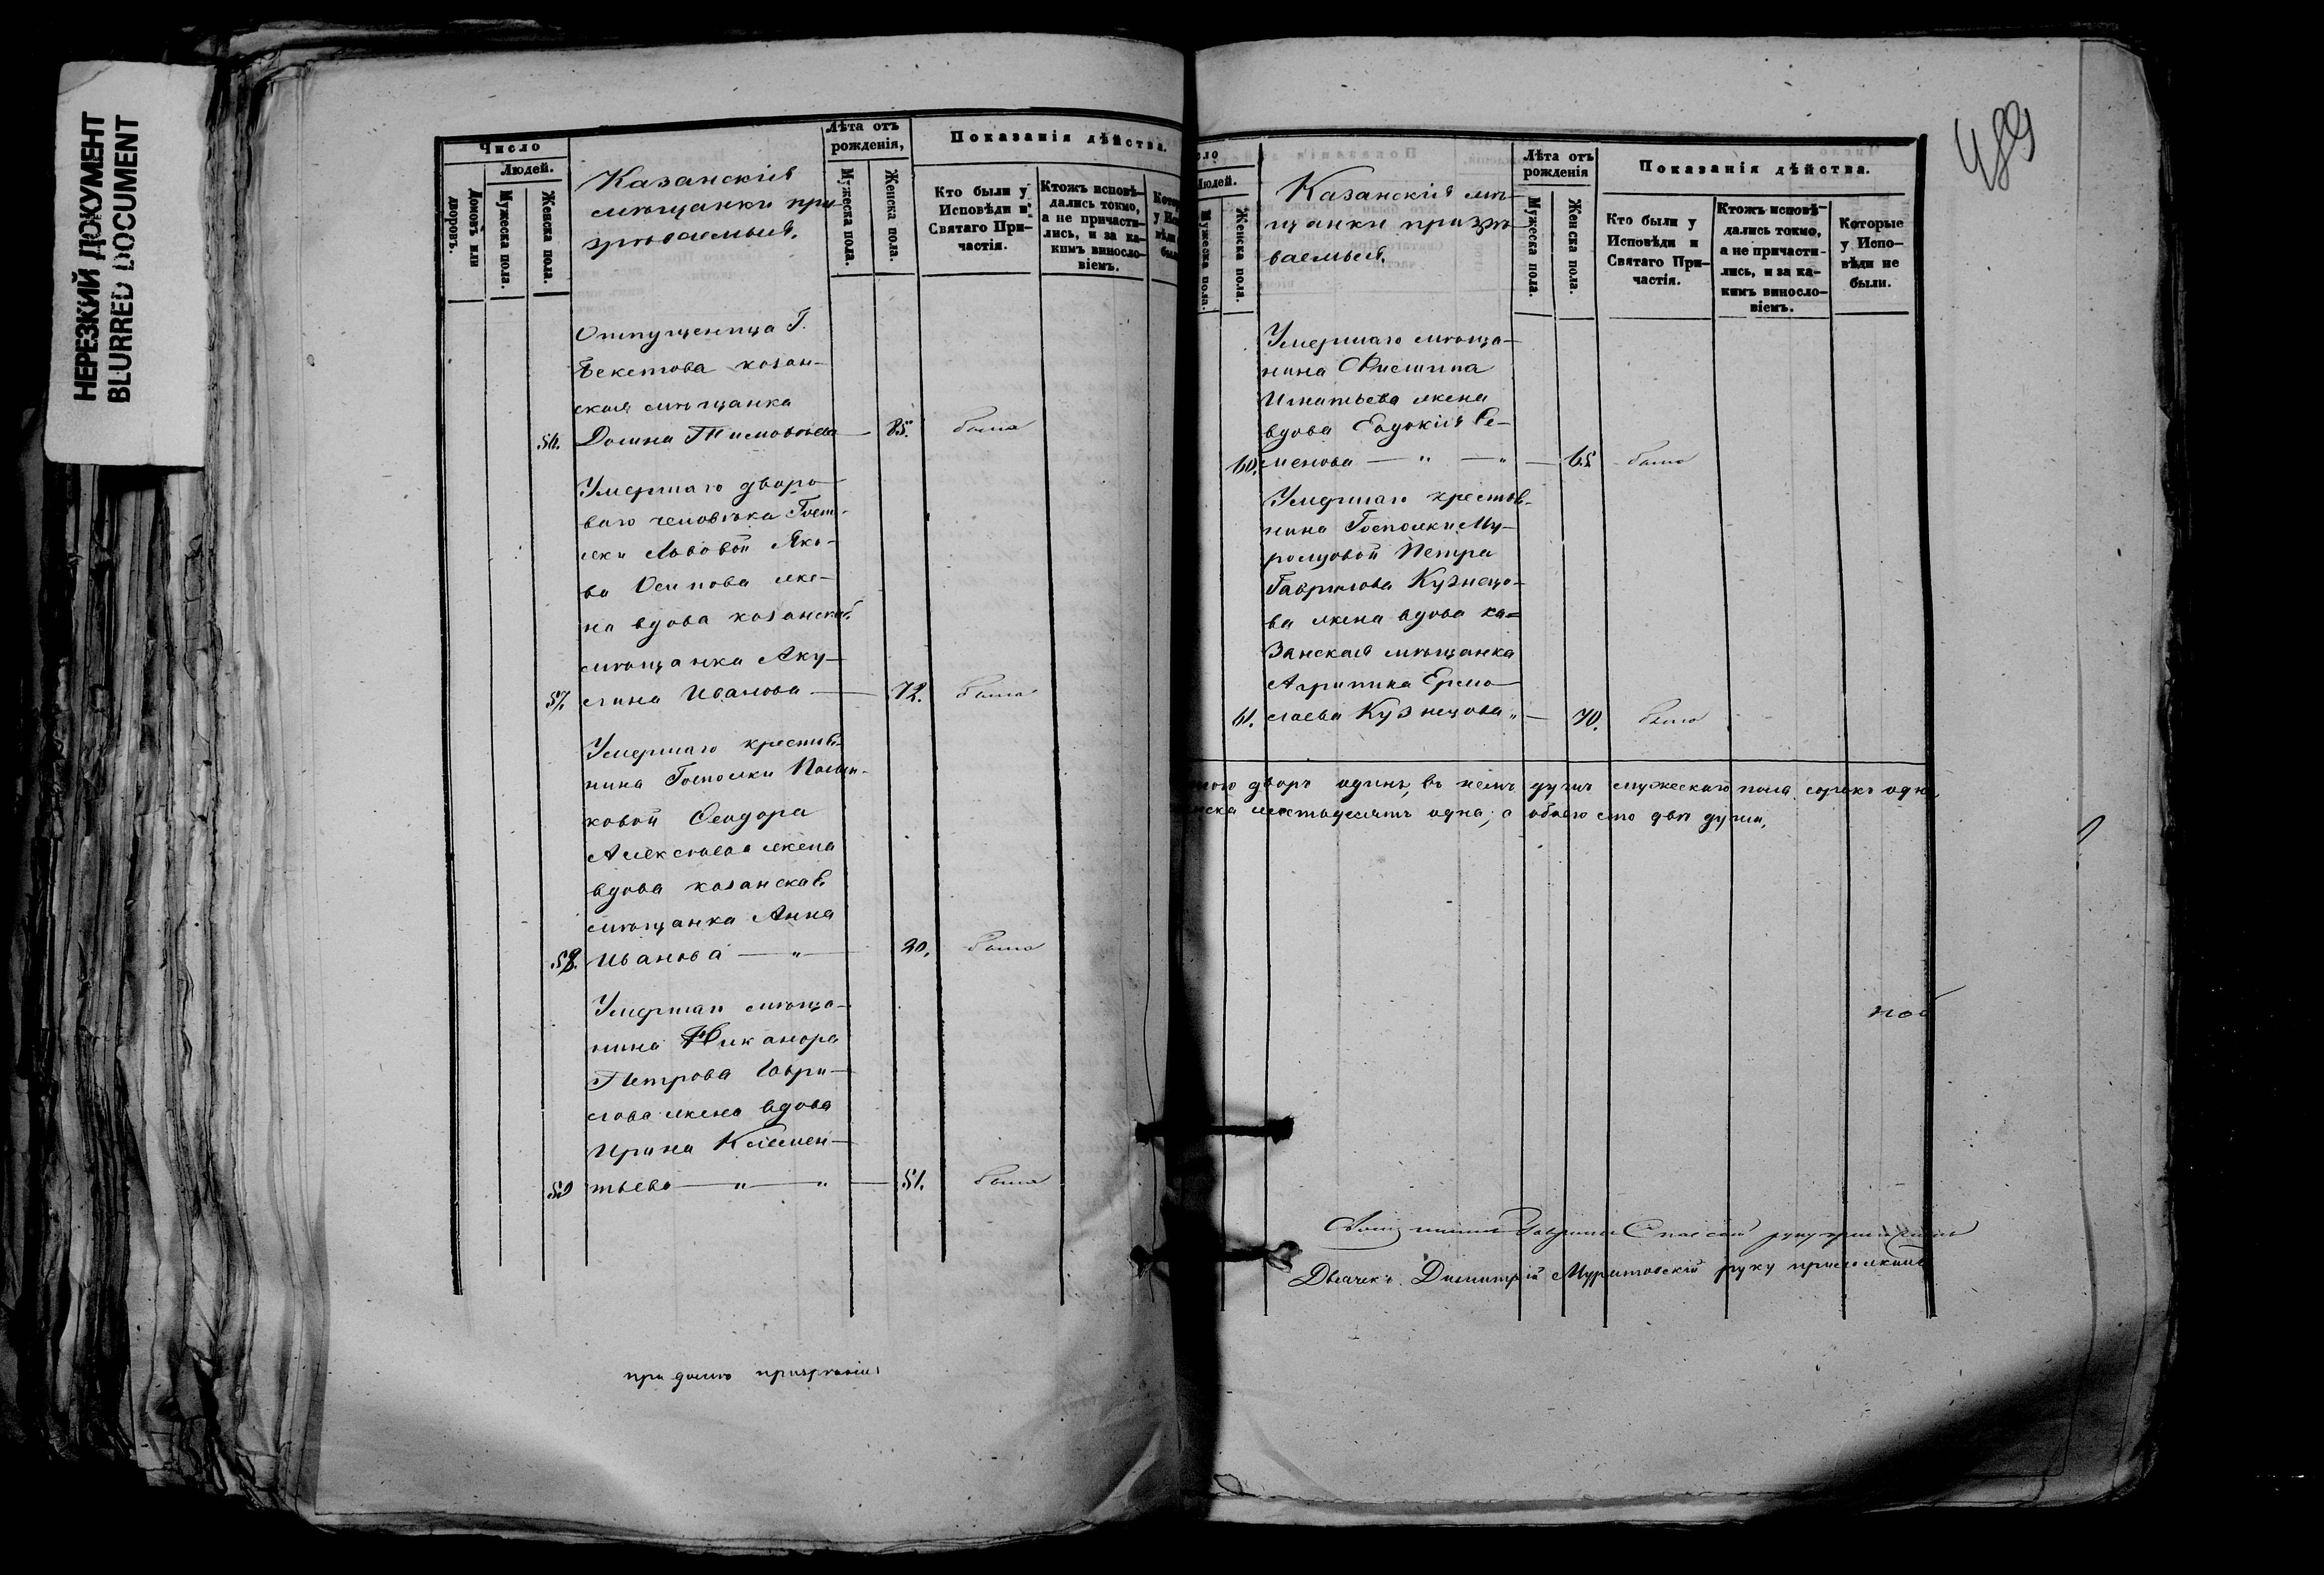 НЕРЕЗКИЙ ДОКУМЕНТ
BLURRED DOCUMENT
Число
Людей.
Домовъ или дворовъ.
Мужеска пола.
Женска пола.
Казанскія
мѣщанки при
зрѣваемыя.
Лѣта отъ
рожденія,
Мужеска пола.
Женска пола.
Показанія дѣйства.
Кто были у
Исповѣди и
Святаго При-
частія.
Ктожъ исповѣ-
дались токмо,
а не причасти-
лись, и за ка-
кимъ винosло-
віемъ.
Отпущеница Г.
Бекетова казан-
ская мѣщанка
56. Домна Тимофѣева — 85. была
Умершаго дворо-
ваго человѣка Госп-
жи Львовой Яко-
ва Осипова же-
на вдова казанская
мѣщанка Аку-
57. лина Иванова — 72. была
Умершаго крестья-
нина Госпожи
ковой Ѳеодора
Алексѣева жена
вдова казанская
мѣщанка Анна
58. Иванова — " — была
Умершаго мѣща-
нина Никанора
Петрова Гаври-
лова жена вдова
Ирина Клемен-
59 тьева — " — " — 51. была
при домѣ призрѣнія
489
сло
Людей.
Мужеска пола.
Женска пола.
Казанскія мѣ-
щанки призрѣ-
ваемыя.
Лѣта отъ
рожденія
Мужеска пола.
Женска пола.
Показанія дѣйства.
Кто были у
Исповѣди и
Святаго При-
частія.
Ктожъ исповѣ-
дались токмо,
а не причасти-
лись, и за ка-
кимъ винosло-
віемъ.
Которые
у Испо-
вѣди не
были.
Умершаго мѣща-
нина Филиппа
Игнатьева жена
вдова Евдокія Се-
60. менова — " — " — 65 была
Умершаго крестья-
нина Госпожи Му-
ромцовой Петра
Гаврилова Кузнецо-
ва жена вдова ка=
занская мѣщанка
Агрипина Ермо-
61. лаева Кузнецова " — 70. была
того дворъ одинъ, въ немъ душъ мужескаго пола сорокъ одна,
нска шестьдесятъ одна; а обоего сто двѣ души,
Священникъ Гавріилъ Спасскій руку приложилъ
Дьячекъ Димитрій Муратовскій руку приложилъ